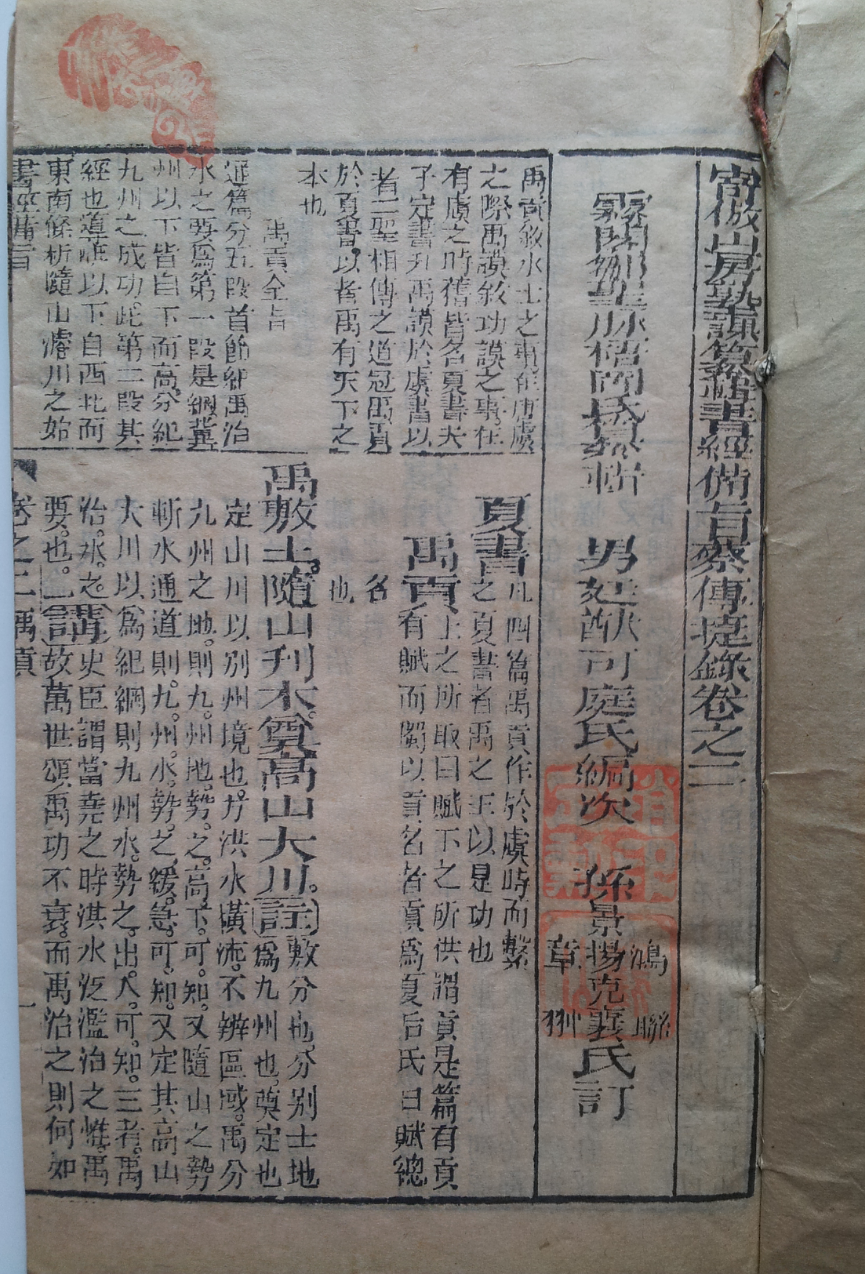 寄傲山房塾課纂輯書經備旨蔡傳捷錄卷之二
霧閣鄒聖脉梧岡氏纂輯 男廷猷可庭氏編次 孫景揚克襄氏訂
鴻 聯
章 猕
禹貢敘水土之事在唐虞
之際禹謨敘功謨之事在
有虞之時舊皆名夏書夫
子定書升禹謨於虞書以
者二聖相傳之道冠禹貢
於夏書以者禹有天下之
本也
禹貢全旨
通篇分五段首節細禹治
水之要爲第一段是綱冀
州以下皆自下而高分紀
九州之成功此第二段其
經也導岍以下自西北而
東南條析隨山濬川之始
夏書凡四篇禹貢作於虞時而繫
之夏書者禹之王以是功也
禹貢上之所取曰賦下之所供謂貢是篇有貢
有賦而獨以貢名者貢爲夏后氏曰賦總
名
也
禹敷土隨山刋木奠高山大川註敷分也分别土地
爲九州也奠定也
定山川以别州境也方洪水橫流不辨區域禹分
九州之地則九州地勢之高下可知又隨山之勢
斬水通道則九州水勢之緩急可知又定其高山
大川以爲紀綱則九州水勢之出入可知三者禹
治水之講史臣謂當堯之時淇水泛濫治之惟禹
要也故萬世頌禹功不衰而禹治之則何如
書經備旨
卷之二禹貢
一